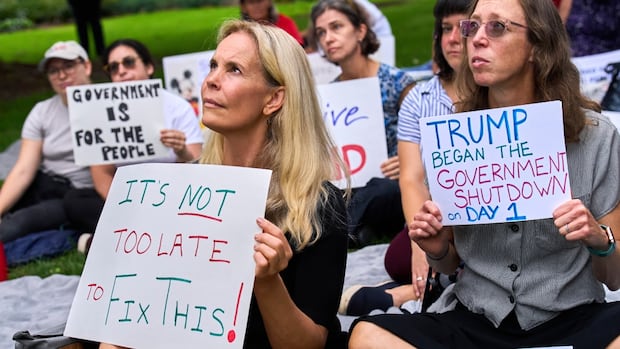 GOVERNMENT
IS
FOR THE
PEOPLE
IT'S NOT
TOO LATE
TO FIX THIS!
TRUMP
BEGAN THE
GOVERNMENT
SHUTDOWN
ON DAY 1